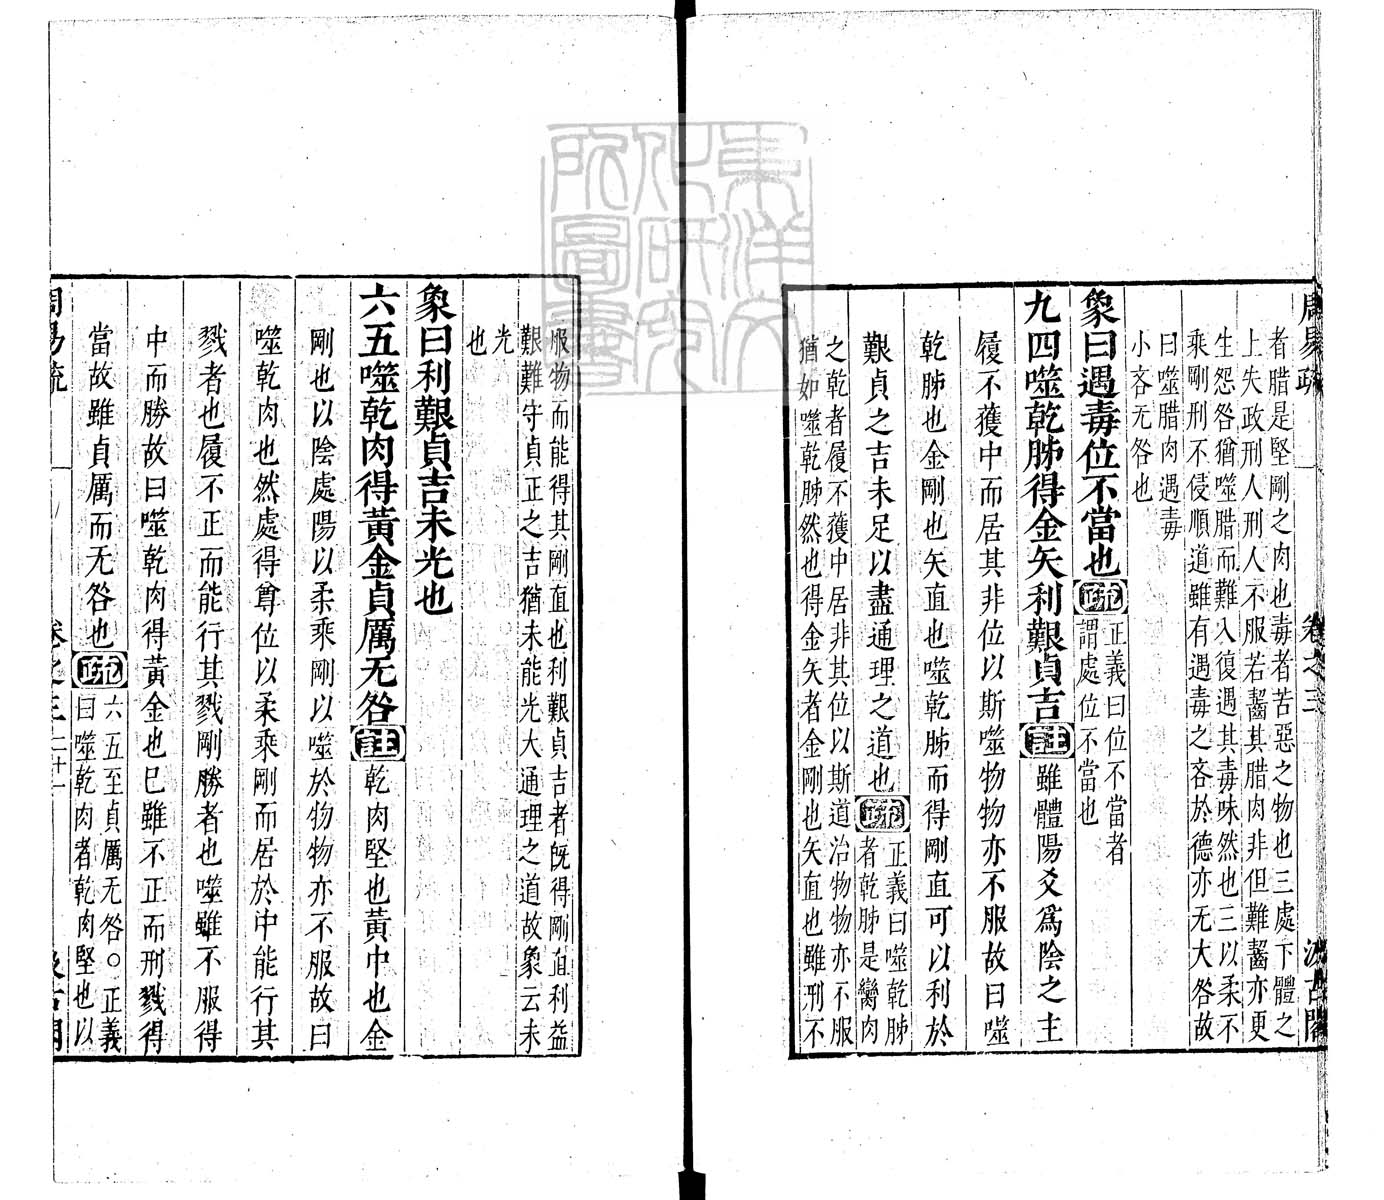 周易疏
卷之三
汲古閣
者腊是堅剛之肉也毒者苦惡之物也三處下體之
上失政刑人刑人不服若齧其腊肉非但難齧亦更
生怨咎猶噬腊而難入復遇其毒味然也三以柔不
乘剛刑不侵順道雖有遇毒之吝於德亦无大咎故
曰噬腊肉遇毒
小吝无咎也
象曰遇毒位不當也疏
正義曰位不當者
謂處位不當也
九四噬乾胏得金矢利艱貞吉註雖體陽爻爲陰之主
履不獲中而居其非位以斯噬物物亦不服故曰噬
乾胏也金剛也矢直也噬乾胏而得剛直可以利於
艱貞之吉未足以盡通理之道也疏
正義曰噬乾胏
者乾胏是臠肉
之乾者履不獲中居非其位以斯道治物物亦不服
猶如噬乾胏然也得金矢者金剛也矢直也雖刑不
服物而能得其剛直也利艱貞吉者既得剛直利益
艱難守貞正之吉猶未能光大通理之道故象云未
光
也
象曰利艱貞吉未光也
六五噬乾肉得黃金貞厲无咎註乾肉堅也黃中也金
剛也以陰處陽以柔乘剛以噬於物物亦不服故曰
噬乾肉也然處得尊位以柔乘剛而居於中能行其
戮者也履不正而能行其戮剛勝者也噬雖不服得
中而勝故曰噬乾肉得黃金也已雖不正而刑戮得
當故雖貞厲而无咎也疏
六五至貞厲无咎○正義
曰噬乾肉者乾肉堅也以
周易疏
卷之三
二十一
汲古閣
東洋文
化研究
所圖書